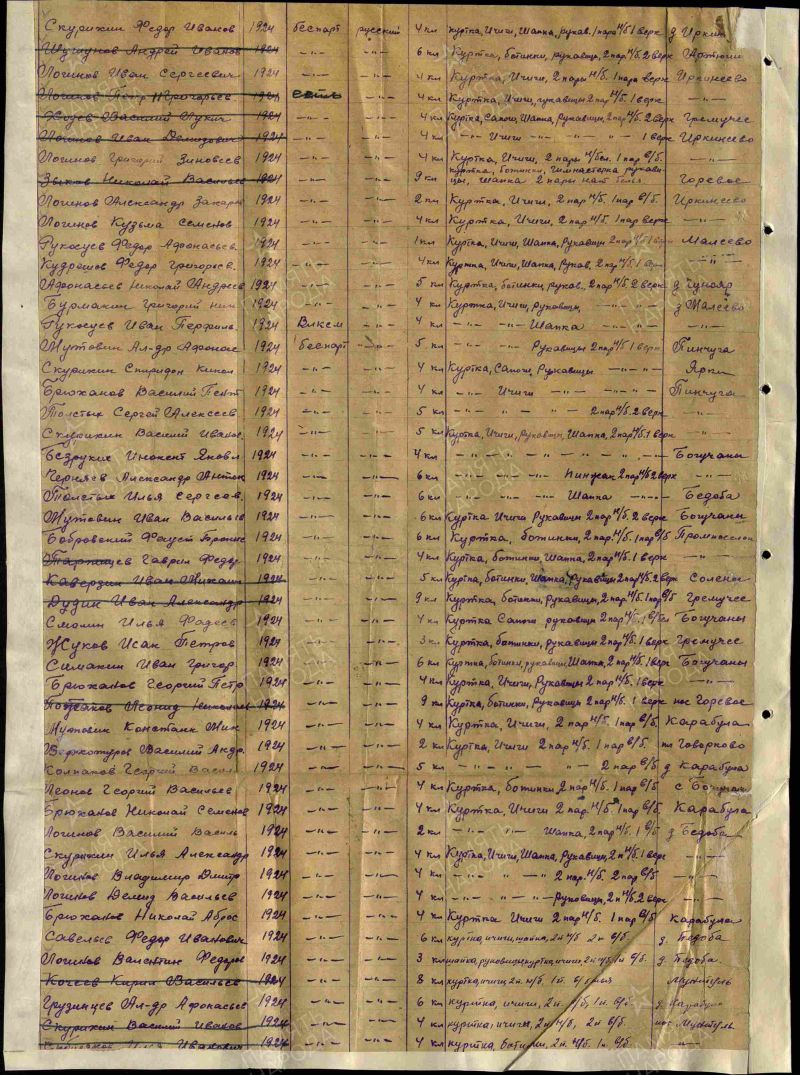 Скурихин Федор Иванов 1924 беспарт русский 4 кл куртка, Ичиги, Шапка, рукав. 1 пара н/б 1 верх д Иркин
Шушунов Андрей Иванов 1924 —"— —"— 6 кл Куртка, ботинки, рукавицы, 2 пар н/б. 2 верх
Логинов Иван Сергеевич 1924 —"— —"— 4 кл Куртка, Ичиги, 2 пары н/б 1 пара верх Иркинеево
Логинов Петр Григорьев 1924 есть —"— 4 кл Куртка, Ичиги, рукавицы 2 пар н/б. 1 верх —"—
Василий Лукич 1924 —"— —"— 4 кл Куртка, Сапоги, Шапка, Рукавицы, 2 пар н/б. 2 верх Гремучее
Логинов Иван Демидович 1924 —"— —"— 4 кл —"— Ичиги —"— 1 верх Иркинеево
Логинов Григорий Зиновеев 1924 —"— —"— 4 кл Куртка, Ичиги, 2 пары н/бел. 1 пар в/б. —"—
Зыков Николай Васильев 1924 —"— —"— 9 кл куртка, ботинки, гимнастерка рукавицы, шапка 2 пары нат белья Горевое
Логинов Александр Захаров 1924 —"— —"— 2 кл Куртка, Ичиги, 2 пар н/б. 1 пар в/б. Иркинеево
Логинов Кузьма Семенов 1924 —"— —"— 4 кл Куртка, Ичиги, 2 пар н/б. 1 пар верх —"—
Рукосуев Федор Афонасьев. 1924 —"— —"— 1 кл Куртка, Ичиги, Шапка, Рукавицы 2 пар н/б 1 верх Малеево
Кудряшов Федор Григорьев. 1924 —"— —"— 4 кл Куртка, Ичиги, Шапка, Рукав. 2 пар н/б. 1 верх —"—
Афонасьев Николай Андреев 1924 —"— —"— 5 кл Куртка, ботинки, рукав., 2 пар н/б. 2 верх д Гунояр
Бурмакин Григорий Ник. 1924 —"— —"— 4 кл Куртка, Ичиги, Рукавицы, —"— д Малеево
Рукосуев Иван Перфиль. 1924 Влксм —"— 4 кл —"— Шапка —"— —"—
Жутовин Ал-др Афонас 1924 беспарт —"— 5 кл —"— Рукавицы 2 пар н/б 1 верх Пинчуга
Скурихин Спиридон 1924 —"— —"— 4 кл Куртка, Сапоги, Рукавицы —"— Ярки
Брюханов Василий 1924 —"— —"— 4 кл —"— Ичиги —"— Пинчуга
Толстых Сергей Алексеев 1924 —"— —"— 5 кл —"— 2 пар н/б. 2 верх —"—
Скурихин Василий Иванов. 1924 —"— —"— 5 кл Куртка, Ичиги, Рукавицы, Шапка, 2 пар н/б. 1 верх —"—
Безруких Инокент Яковл 1924 —"— —"— 4 кл —"— Богучаны
Черняев Александр Антон 1924 —"— —"— 6 кл —"— Пинжак 2 пар н/б 2 верх —"—
Толстых Илья Сергеев. 1924 —"— —"— 6 кл —"— Шапка —"— Бедоба
Жутовин Иван Васильев 1924 —"— —"— 6 кл Куртка Ичиги Рукавицы 2 пар н/б. 2 верх Богучаны
Бобровский Фауст 1924 —"— —"— 6 кл Куртка, ботинки, 2 пар. н/б. 1 пар в/б
Гаврил Федор 1924 —"— —"— 4 кл Куртка, ботинки, Шапка, 2 пар н/б. 1 верх —"—
Каверзин Иван Михаил 1924 —"— —"— 5 кл Куртка, ботинки, Шапка, рукавицы 2 пар н/б. 2 верх
Дудин Иван Александр 1924 —"— —"— 9 кл Куртка, ботинки, Рукавицы, 2 пар н/б. 1 пар в/б Гремучее
Смолин Илья Фадеев 1924 —"— —"— 4 кл Куртка Сапоги рукавицы 2 пар н/б. Богучаны
Жуков Исан Петров 1924 —"— —"— 3 кл Куртка, ботинки, рукавицы 2 пар н/б. 1 верх Гремучее
Симакин Иван Григор. 1924 —"— —"— 6 кл Куртка, ботинки, рукавицы Шапка, 2 пар н/б. 1 верх Богучаны
Брюханов Георгий Петр 1924 —"— —"— 4 кл Куртка, Ичиги, Рукавицы, 2 пар н/б. 1 верх —"—
Леонид Николаев 1924 —"— —"— 9 кл Куртка, ботинки, Рукавицы 2 пар н/б. 1 верх пос Горевое
Жутовин Констант Ник 1924 —"— —"— 4 кл Куртка, Ичиги, 2 пар н/б. 1 пар в/б. Карабула
Верхотуров Василий Андр. 1924 —"— —"— 2 кл Куртка, Ичиги 2 пар н/б. 1 пар в/б. Говорково
Колпаков Георгий Васил 1924 —"— —"— 5 кл —"— 2 пар в/б д Карабула
Леонов Георгий Васильев 1924 —"— —"— 4 кл Куртка, ботинки 2 пар н/б. 1 пар в/б. с Богучан
Брюханов Николай Семенов 1924 —"— —"— 4 кл Куртка, Ичиги 2 пар. н/б. 1 пар в/б. Карабула
Логинов Василий Василь 1924 —"— —"— 2 кл —"— Шапка, 2 пар н/б. 1 в/б д Бедоба
Скурихин Илья Александр 1924 —"— —"— 4 кл Куртка, Ичиги, Шапка, Рукавицы, 2 п н/б. 1 верх —"—
Логинов Владимир Дмитр 1924 —"— —"— 4 кл —"— 2 пар. н/б. 2 пар в/б —"—
Логинов Демид Васильев 1924 —"— —"— 4 кл —"— Рукавицы, 2 п н/б. 2 верх —"—
Брюханов Николай Аброс 1924 —"— —"— 4 кл Куртка Ичиги 2 пар н/б. 1 пар в/б Карабула
Савельев Федор Иванович 1924 —"— —"— 6 кл куртка, ичиги, шапка, 2 п н/б 2 п в/б. д. Бедоба
Логинов Валентин Федоров 1924 —"— —"— 3 кл шапка, рукавицы, куртка, ичиги, 2 п н/б 1 п в/б. д. Бедоба
Кочеев Карил Васильев 1924 —"— —"— 8 кл куртка, ичиги, 2 п. н/б, 1 п. в/б
Грузинцев Ал-др Афонасьев 1924 —"— —"— 6 кл куртка, ичиги, 2 п. н/б, 1 п. в/б. д. Карабула
Скурихин Василий Иванов 1924 —"— —"— 4 кл куртка, ичиги, 2 п н/б, 2 п в/б.
Иванович 1924 —"— —"— 4 кл куртка, ботинки, 2 п. н/б. 1 п. в/б. —"—